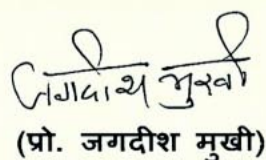 जगदीश मुखी
(प्रो. जगदीश मुखी)